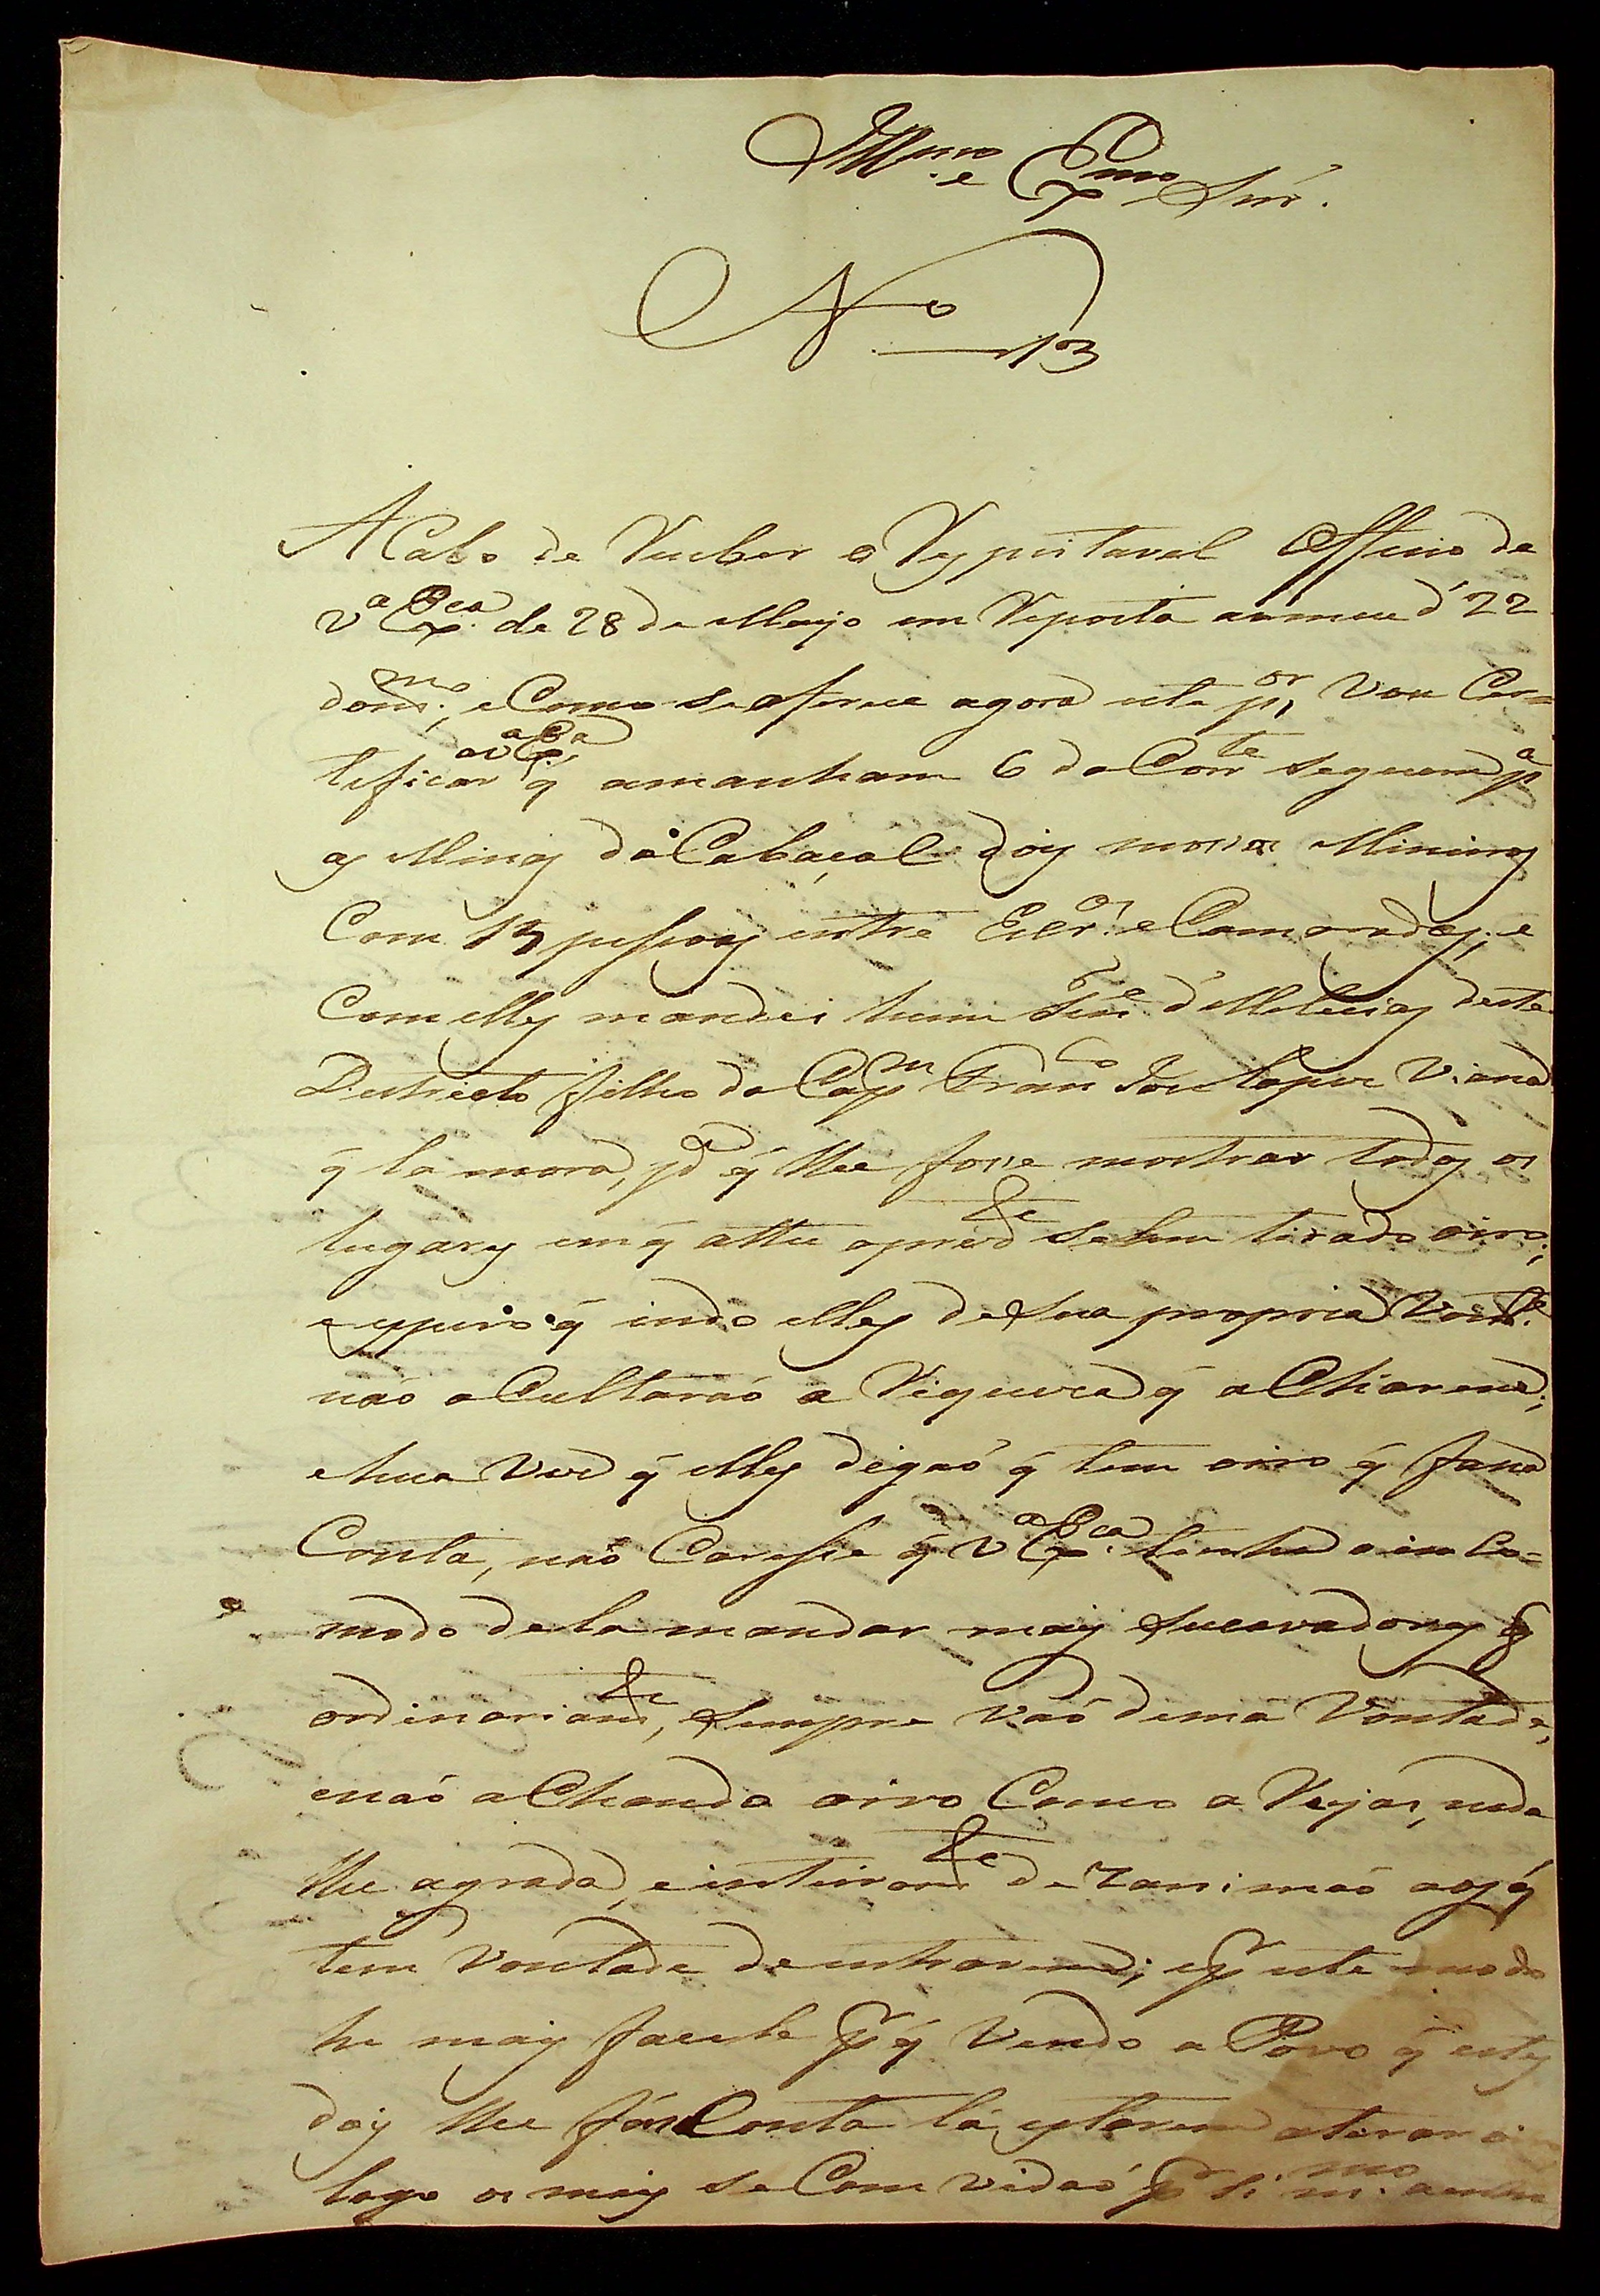 Illmo. e Exmo Snr.
No 13
ACabo de Receber o Respeitavel Officio de
Va Exca. de 28 de Mayo em Reposta aomeu d' 22
do mmo; eComo se oferece agora este por, Vou Cer=
teficar a Va Exa q̃ amanham 6 do Corrte seguem pa
as Minas do Cabaçal dois mossos Mineiros
Com 13 pessoas entre Escros. e Camaradas; e
Comelles mandei hum Tene. d' Melicias deste
Destricto filho do Capm Franco José Lopes Viana
q̃ la mora, pa q̃ lhe fosse mostrar todos os
lugares emq̃ athe oprezte setem tirado oiro;
eespero q̃ indo elles deSua propria Vonte.
não oCultaraõ a Riqueza q̃ aCharem;
ehua Vez q̃ elles digaõ q̃ tem oiro q̃ fassa
Conta, não Caresse q̃ Va Exca. tenha oinCo=
modo dela mandar mais Sucavadores q̃
ordinariamte, Sempre vaõ demá Vontade,
enaõ aChando oiro Como a Rejas, nada
lhe agrada, einteirante dezanimaõ aos q̃
tem Vontade deentrarem; epr este modo
he mais facele pr q̃ Vendo o Povo q̃ estes
dois lhe fás Conta lá estarem atirar
logo os mais seComvidaõ pr si mmo. aentra